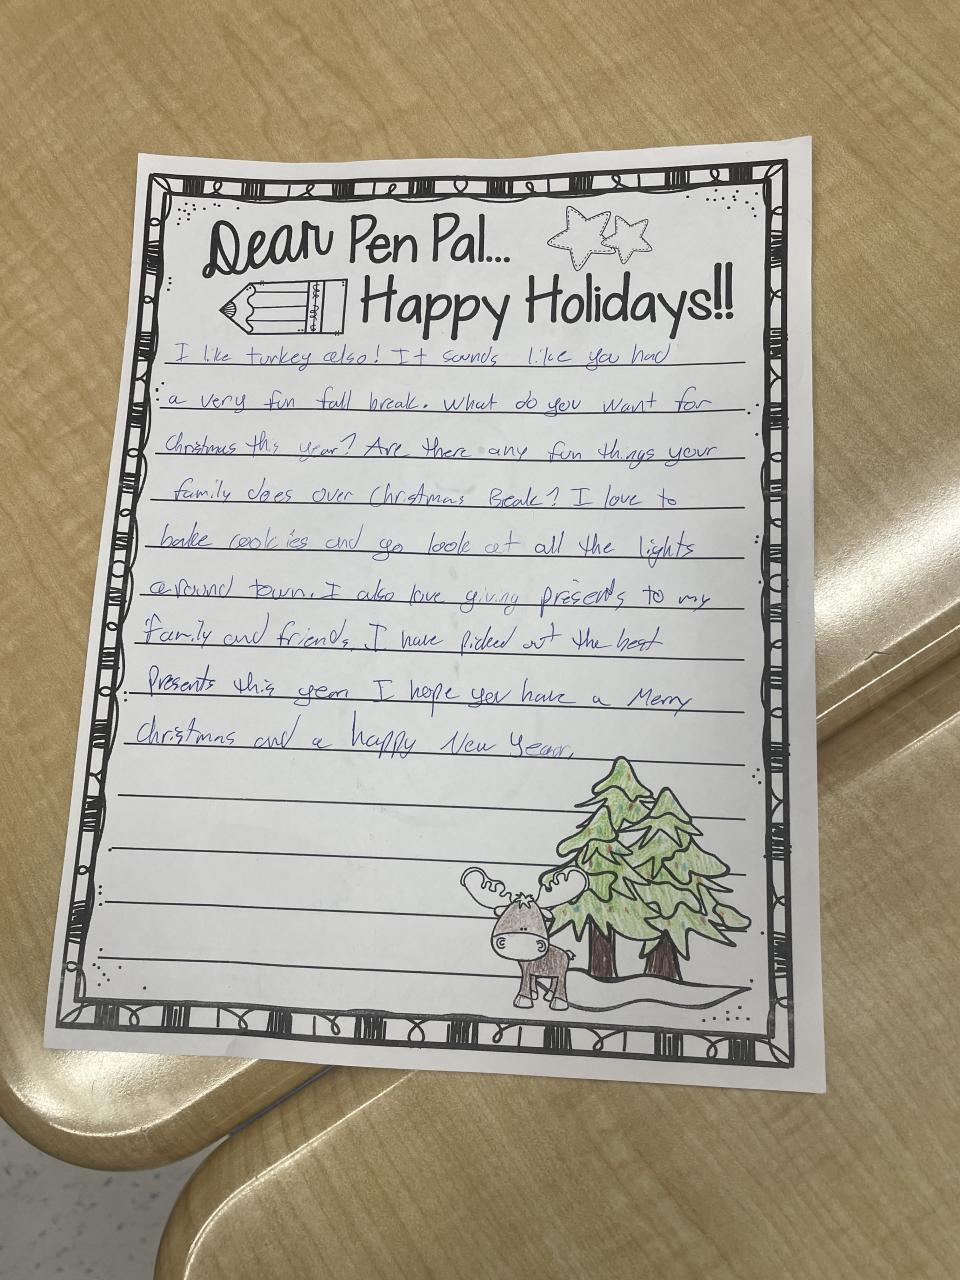 Dear Pen Pal...
Happy Holidays!!
I like turkey also! It sounds like you had
a very fun fall break. What do you want for
Christmas this year? Are there any fun things your
family does over Christmas Break? I love to
bake cookies and go look at all the lights
around town. I also love giving presents to my
family and friends. I have picked out the best
Presents this year. I hope you have a Merry
Christmas and a happy New Year.